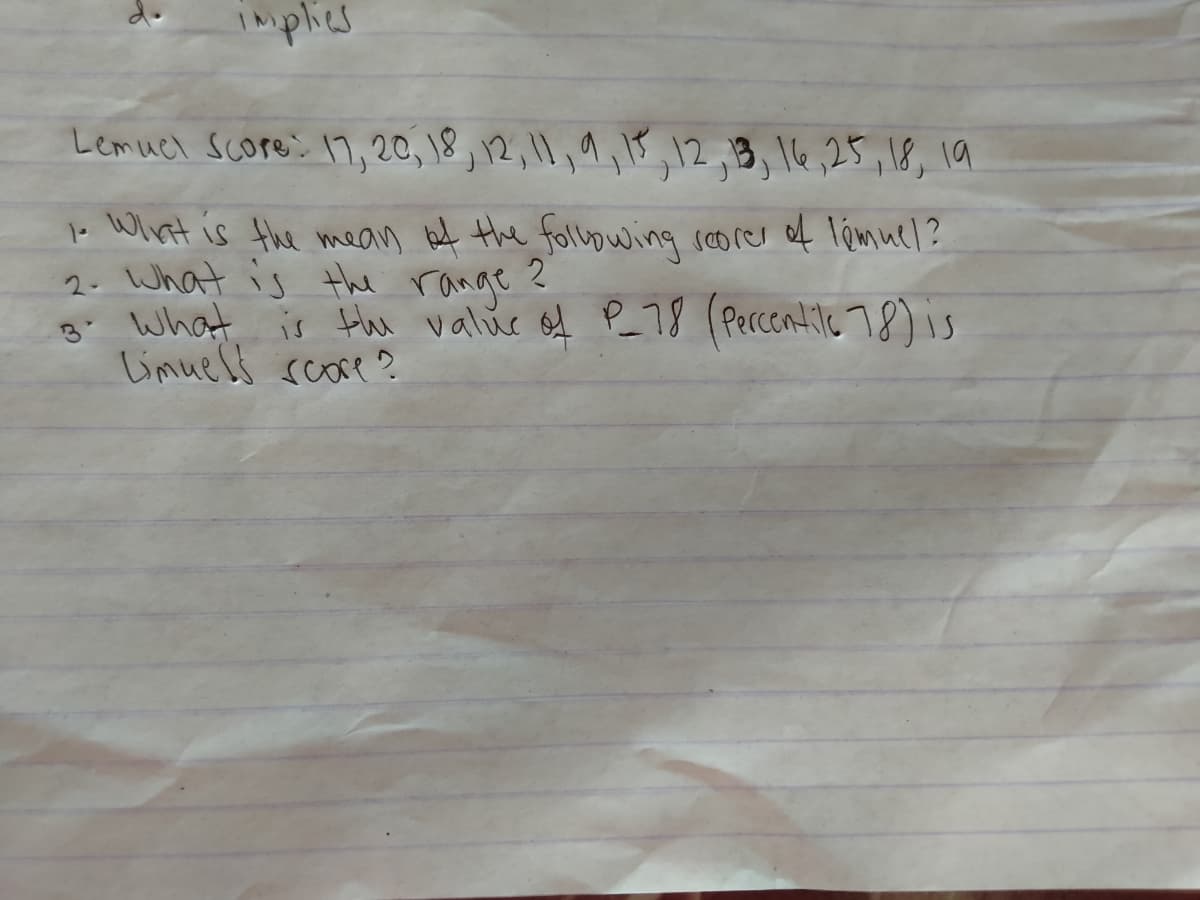 d. implies
Lemuel Score: 17, 20, 18, 12, 11, 9, 15, 12, 13, 16, 25, 18, 19
1. What is the mean of the following scores of lemuel?
2. What is the range?
3. What is the value of P_78 (Percentile 78) is
Limuel's score?